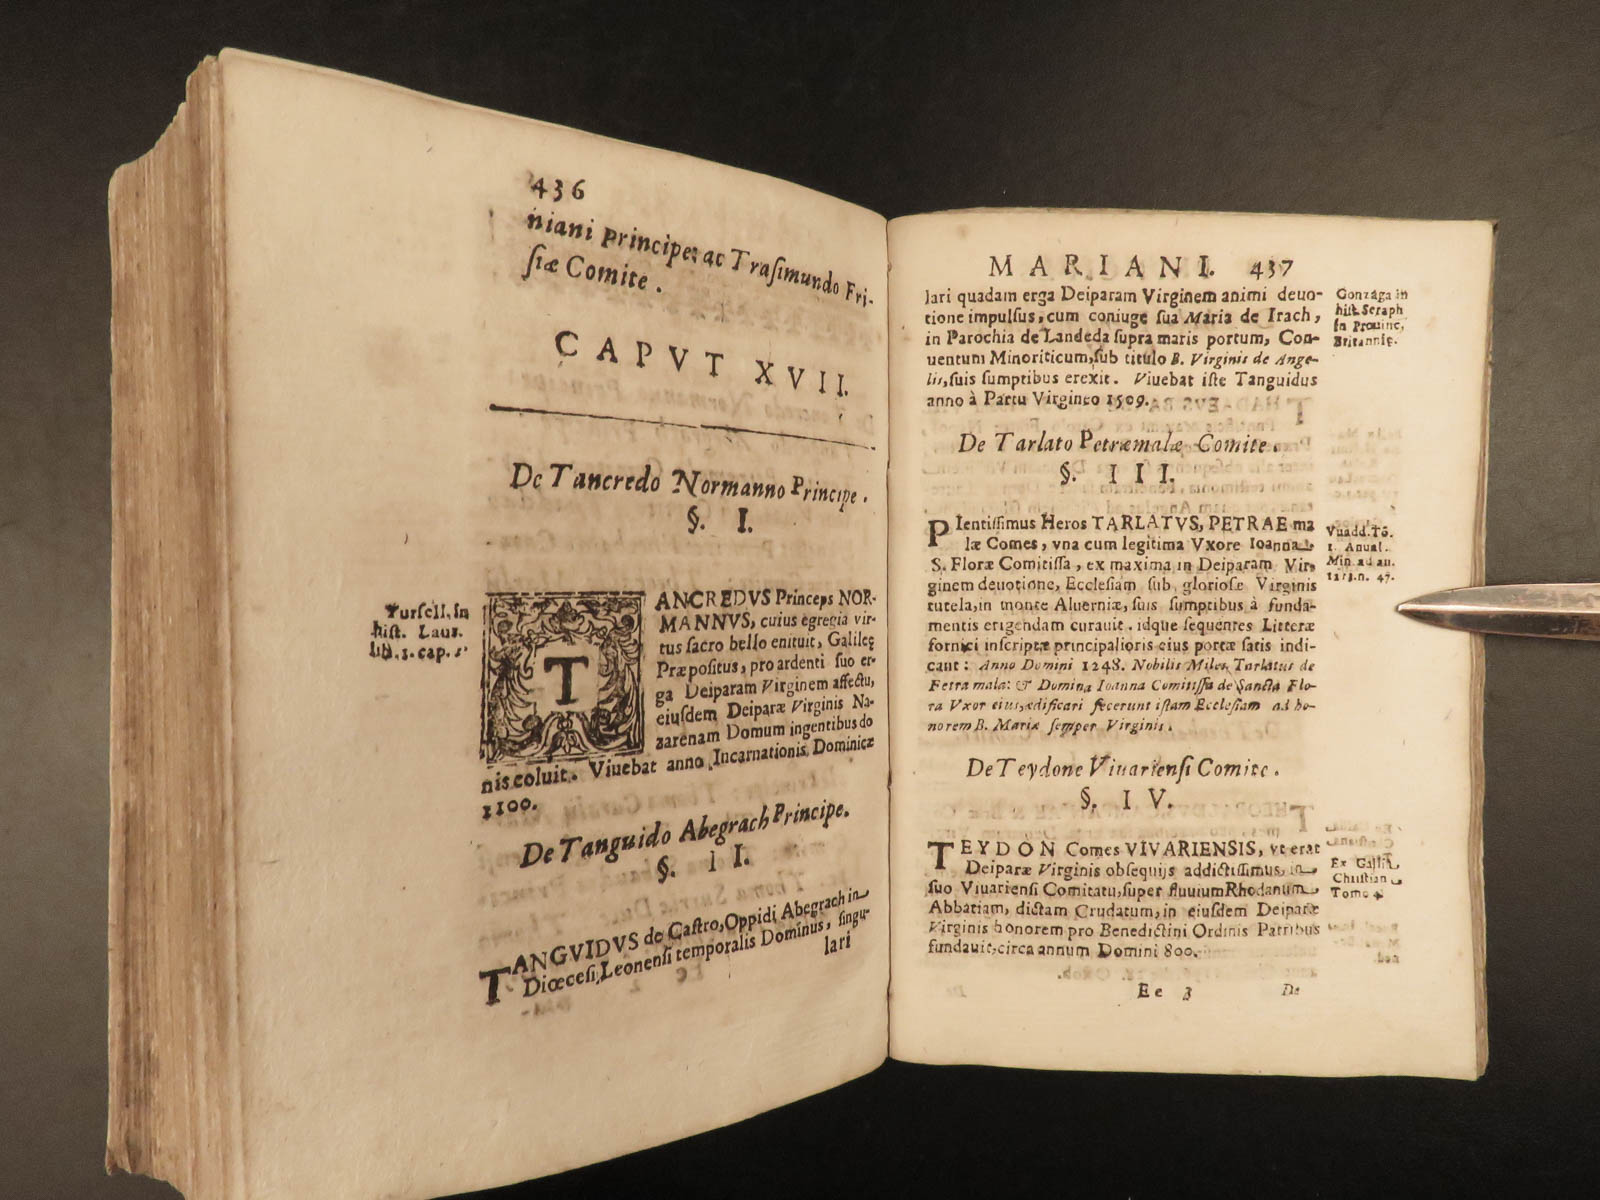 436
niani Principe; ac Trasimundo Fri-
siæ Comite.
CAPVT XVII.
De Tancredo Normanno Principe.
§. I.
Tursell. in
hist. Laur.
lib. 1. cap. 5
TANCREDVS Princeps NOR-
MANNVS, cuius egregia vir-
tus sacro bello enituit, Galileę
Præpositus, pro ardenti suo er-
ga Deiparam Virginem affectu,
eiusdem Deiparæ Virginis Na-
zarenam Domum ingentibus do
nis coluit. Viuebat anno Incarnationis Dominicæ
1100.
De Tanguido Abegrach Principe.
§. II.
TANGVIDVS de Castro, Oppidi Abegrach in
Diœcesi Leonensi temporalis Dominus, singu-
lari
MARIANI. 437
lari quadam erga Deiparam Virginem animi deuo-
tione impulsus, cum coniuge sua Maria de Irach,
in Parochia de Landeda supra maris portum, Con-
uentum Minoriticum, sub titulo B. Virginis de Ange-
lis, suis sumptibus erexit. Viuebat iste Tanguidus
anno à Partu Virgineo 1509.
Gonzaga in
hist. Seraph
in Prouinc.
Britannię.
De Tarlato Petræmalæ Comite.
§. III.
PIentissimus Heros TARLATVS, PETRAE ma
læ Comes, vna cum legitima Vxore Ioanna
S. Floræ Comitissa, ex maxima in Deiparam Vir-
ginem deuotione, Ecclesiam sub gloriosæ Virginis
tutela, in monte Aluerniæ, suis sumptibus à funda-
mentis erigendam curauit. idque sequentes Litteræ
fornici inscriptæ principalioris eius portæ satis indi-
cant: Anno Domini 1248. Nobilis Miles Tarlatus de
Petra mala: & Domina Ioanna Comitissa de Sancta Flo-
ra Vxor eius, ædificari fecerunt istam Ecclesiam ad ho-
norem B. Mariæ semper Virginis.
Vuadd. To.
1. Anual.
Min. ad an.
1213. n. 47.
De Teydone Viuariensi Comite.
§. IV.
TEYDON Comes VIVARIENSIS, vt erat
Deiparæ Virginis obsequijs addictissimus, in
suo Viuariensi Comitatu, super fluuium Rhodanum
Abbatiam, dictam Crudatum, in eiusdem Deiparæ
Virginis honorem pro Benedictini Ordinis Patribus
fundauit, circa annum Domini 800.
Ex Gallia
Christian
Tomo 4.
Ee 3 De